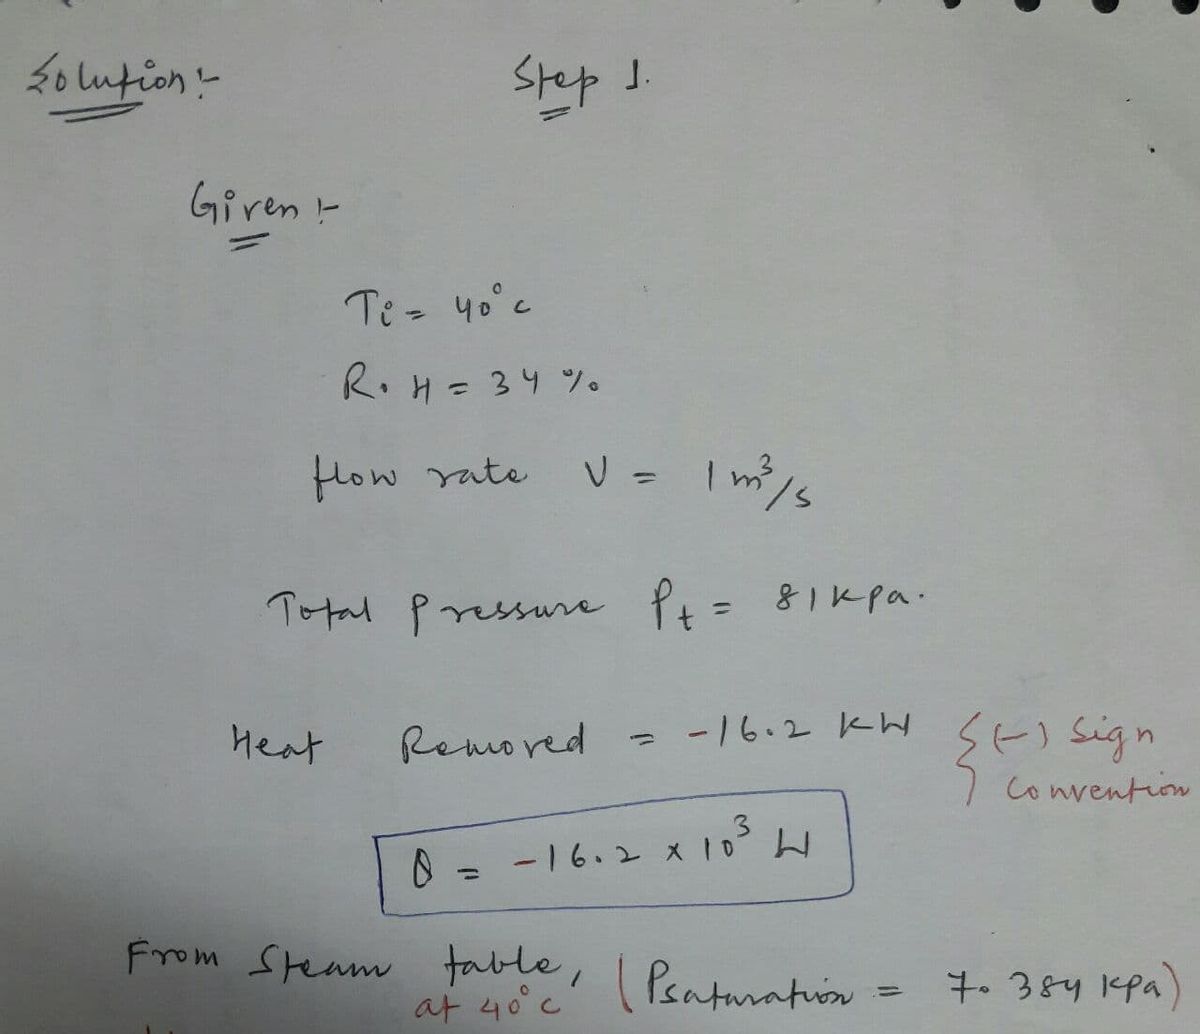 Solution :-
Step 1.
Given :-
Ti = 40°c
R.H = 34 %
flow rate V = 1 m³/s
Total Pressure Pt = 81 kpa.
Heat Removed = -16.2 kW { (-) Sign
convention
Q = -16.2 x 10³ W
From Steam table, ( Psaturation = 7.384 kpa)
at 40°c